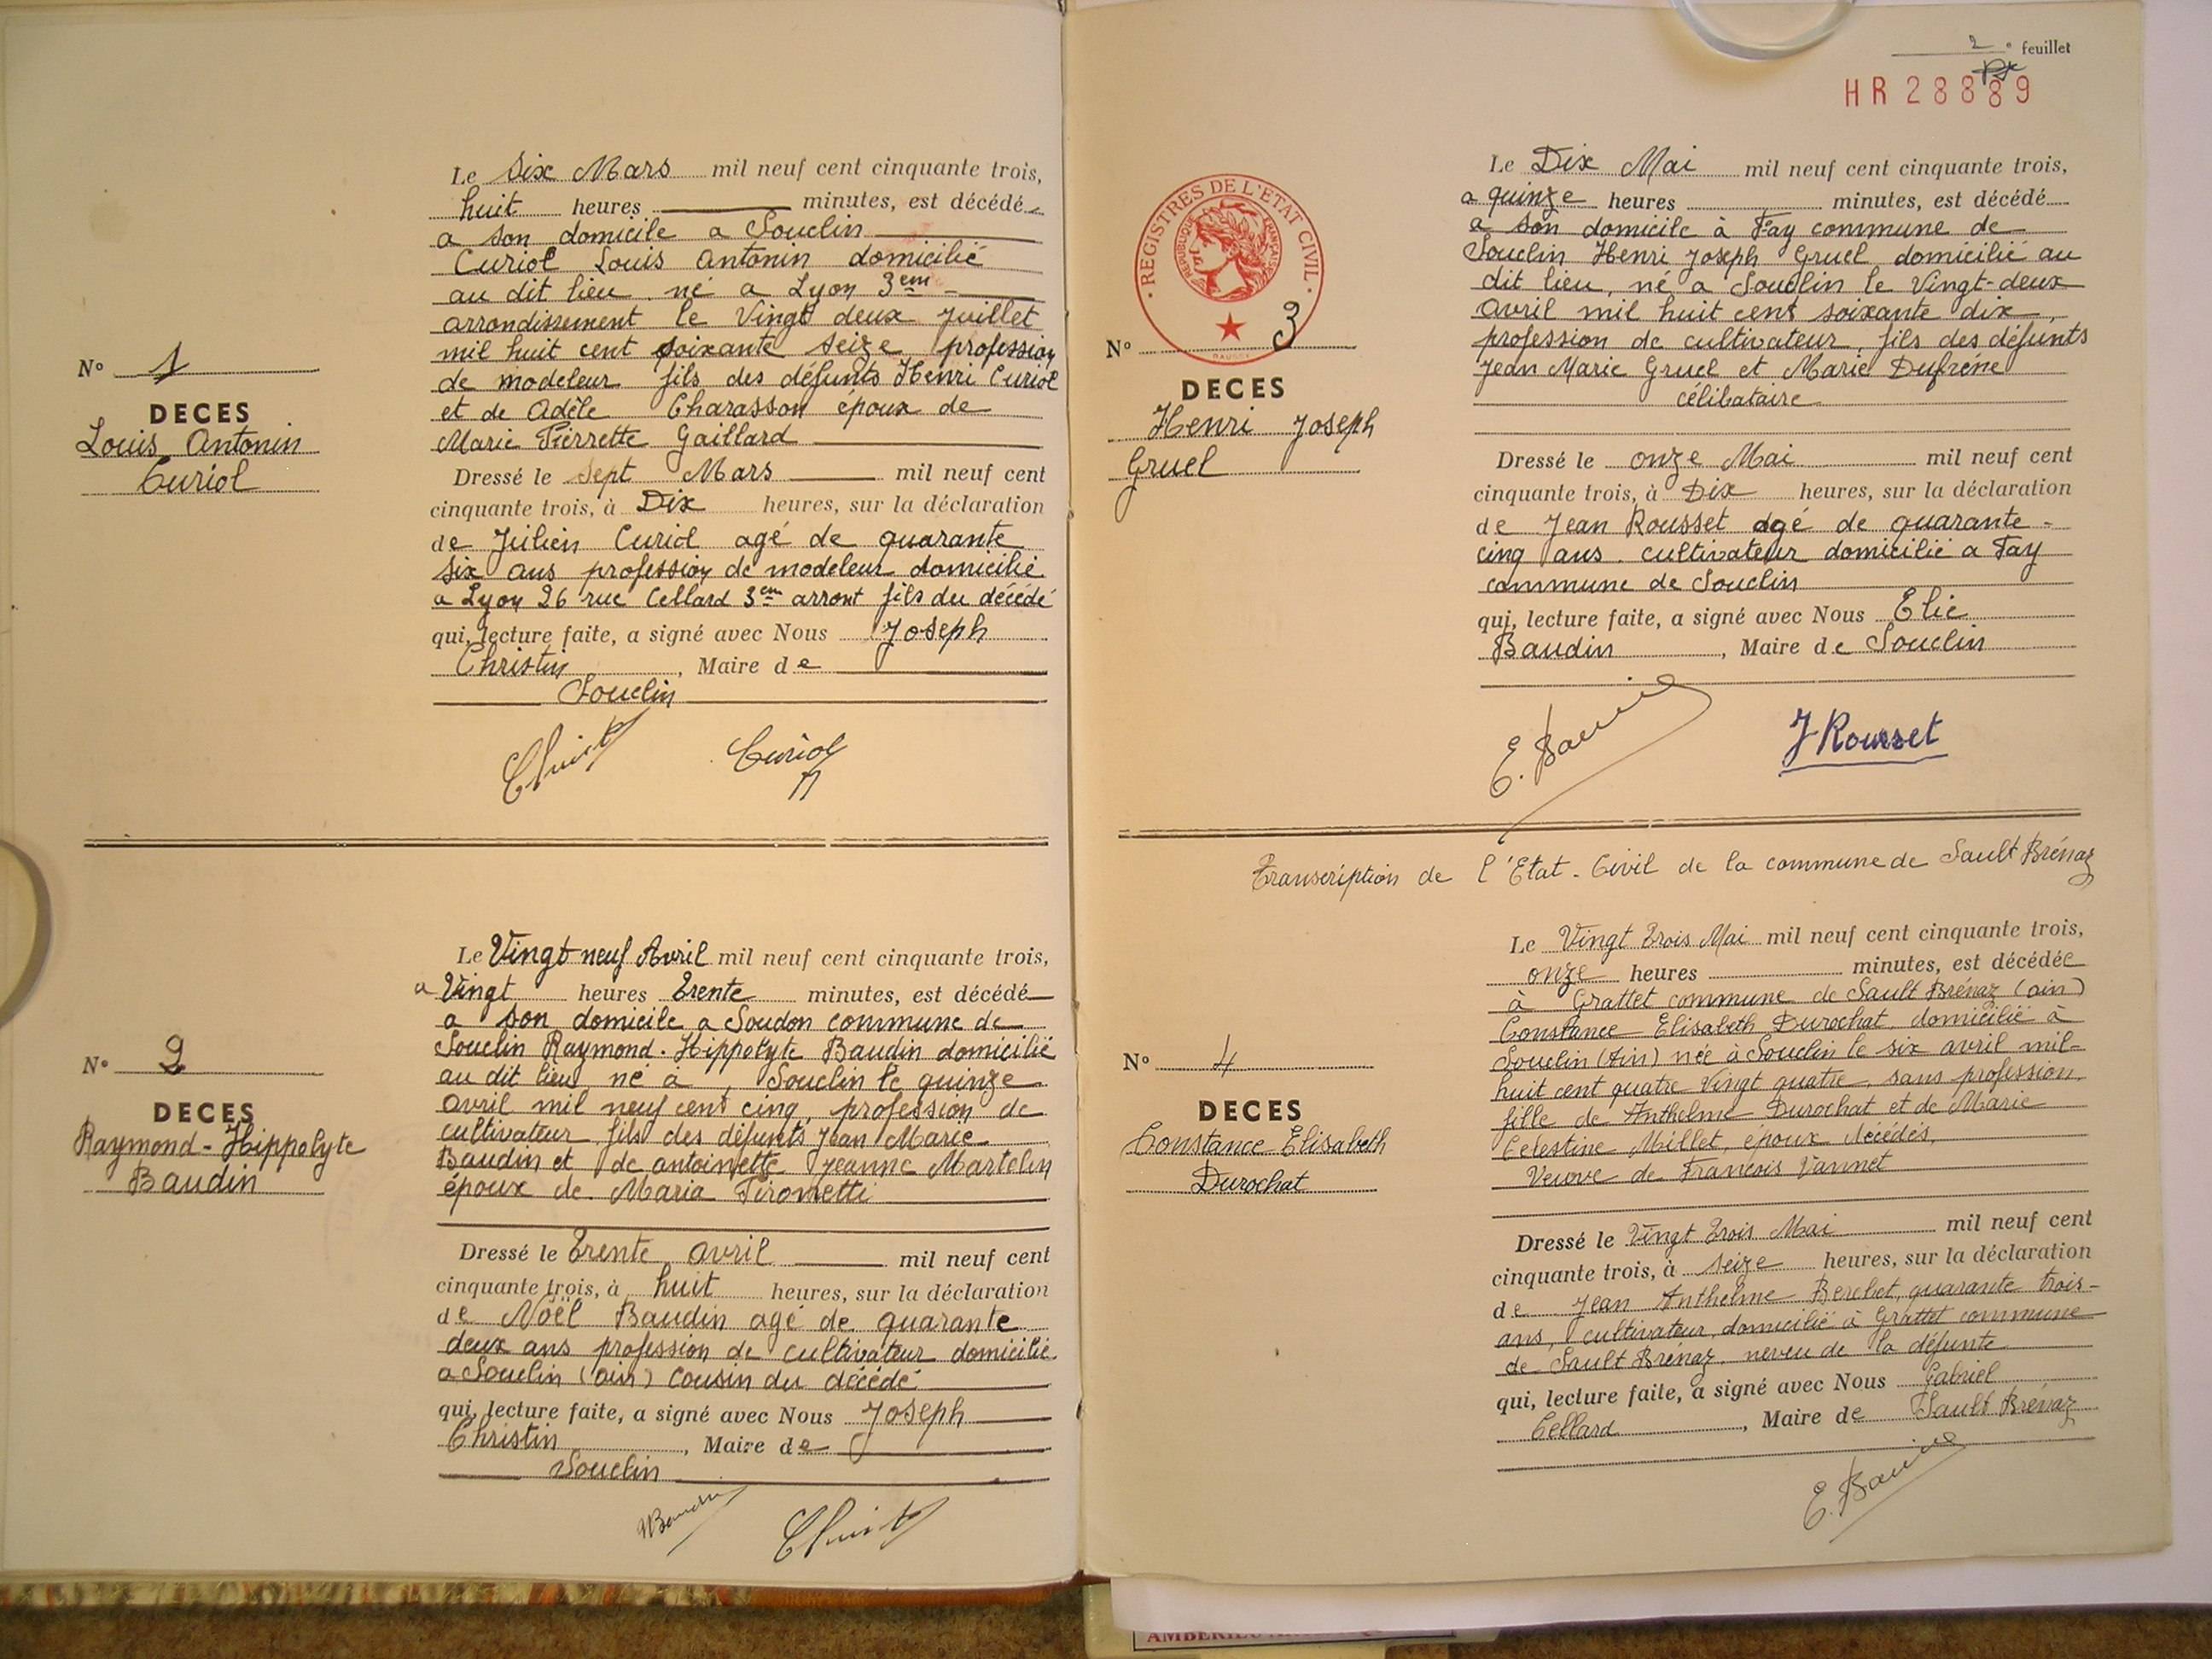 N° 1
DECES
Louis Antonin
Curiol
Le Six Mars mil neuf cent cinquante trois,
huit heures minutes, est décédé
a son domicile a Souclin
Curiol Louis Antonin domicilié
au dit lieu né a Lyon 3em
arrondissement le Vingt deux Juillet
mil huit cent soixante seize profession
de modeleur fils des défunts Henri Curiol
et de Adèle Charasson époux de
Marie Pierrette Gaillard
Dressé le Sept Mars mil neuf cent
cinquante trois, à Dix heures, sur la déclaration
de Julien Curiol agé de quarante
six ans profession de modeleur domicilié
a Lyon 26 rue Cellard 3em arront fils du décédé
qui, lecture faite, a signé avec Nous Joseph
Christin, Maire de
Souclin
Curiol
N° 2
DECES
Raymond-Hippolyte
Baudin
Le Vingt neuf Avril mil neuf cent cinquante trois,
a Vingt heures Trente minutes, est décédé
a son domicile a Soudon commune de
Souclin Raymond-Hippolyte Baudin domicilié
au dit lieu, né à, Souclin le quinze
avril mil neuf cent cinq, profession de
cultivateur fils des défunts Jean Marie
Baudin et de antoinette Jeanne Martelin
époux de Maria Tirometti
Dressé le Trente avril mil neuf cent
cinquante trois, à huit heures, sur la déclaration
de Noël Baudin agé de quarante
deux ans profession de cultivateur domicilié
a Souclin (ain) Cousin du décédé
qui, lecture faite, a signé avec Nous Joseph
Christin, Maire de
Souclin
2e feuillet
HR 28889
REGISTRES DE L'ETAT CIVIL
REPUBLIQUE FRANÇAISE
N° 3
DECES
Henri Joseph
Gruel
Le Dix Mai mil neuf cent cinquante trois,
a quinze heures minutes, est décédé
a son domicile à Fay commune de
Souclin Henri Joseph Gruel domicilié au
dit lieu, né a Souclin le Vingt-deux
avril mil huit cent soixante dix,
profession de cultivateur, fils des défunts
Jean Marie Gruel et Marie Dufrène
célibataire
Dressé le onze Mai mil neuf cent
cinquante trois, à Dix heures, sur la déclaration
de Jean Rousset agé de quarante-
cinq ans. cultivateur domicilié a Fay
commune de Souclin
qui, lecture faite, a signé avec Nous Elie
Baudin, Maire de Souclin
E. Baudin
J Rousset
Transcription de l'Etat-Civil de la commune de Sault Brénaz
N° 4
DECES
Constance Elisabeth
Durochat
Le Vingt trois Mai mil neuf cent cinquante trois,
onze heures minutes, est décédée
à Grattet commune de Sault Brénaz (ain)
Constance Elisabeth Durochat, domicilié à
Souclin (Ain) née à Souclin le six avril mil-
huit cent quatre vingt quatre, sans profession.
fille de Anthelme Durochat et de Marie
Celestine Millet, époux décédés,
Veuve de Francois Vannet
Dressé le Vingt trois Mai mil neuf cent
cinquante trois, à seize heures, sur la déclaration
de Jean Anthelme Berchet, quarante trois-
ans, cultivateur, domicilié à Grattet commune
de Sault Brénaz. neveu de la défunte
qui, lecture faite, a signé avec Nous Gabriel
Cellard, Maire de Sault Brénaz
E. Baudin